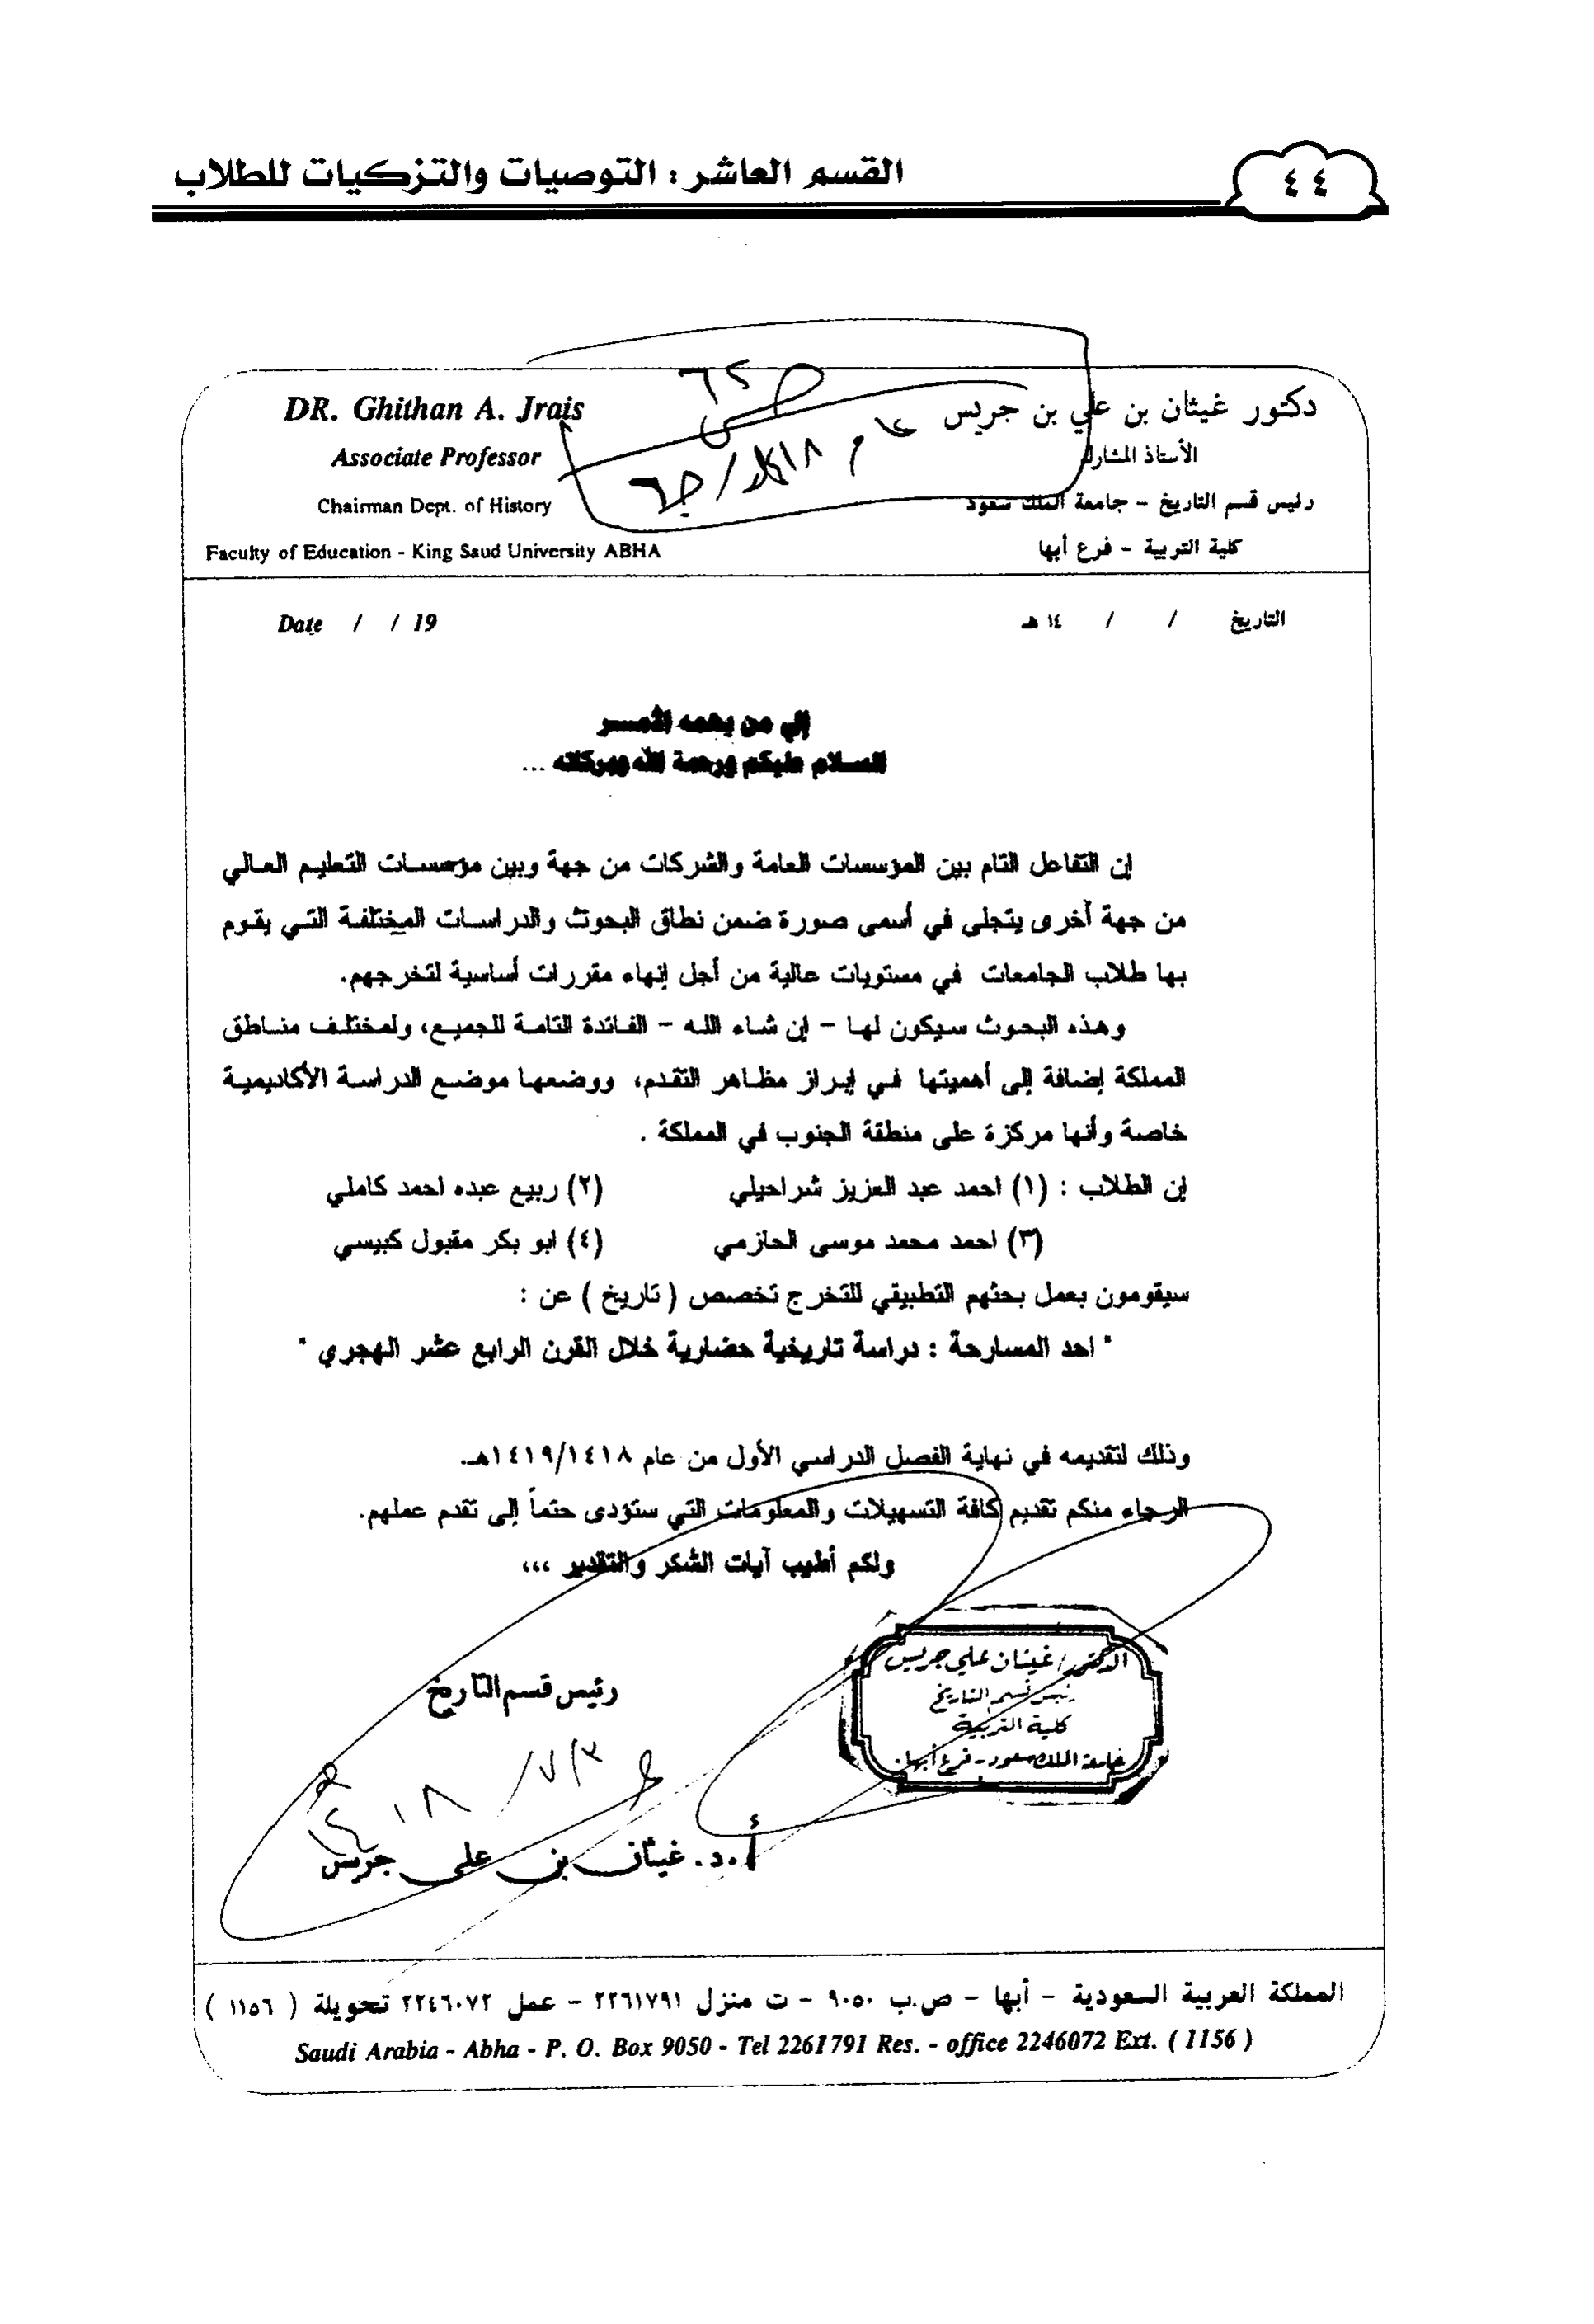 ٤٤
القسم العاشر : التوصيات والتزكيات للطلاب
دكتور غيثان بن علي بن جريس
DR. Ghithan A. Jrais
الأستاذ المشارك
Associate Professor
رئيس قسم التاريخ - جامعة الملك سعود
Chairman Dept. of History
كلية التربية - فرع أبها
Faculty of Education - King Saud University ABHA
التاريخ / / ١٤ هـ
Date / / 19
إلي من يهمه الأمـــر
الســلام عليكم ورحمة الله وبركاته ...
إن التفاعل التام بين المؤسسات العامة والشركات من جهة وبين مؤسسـات التعليـم العـالي
من جهة أخرى يتجلى في أسمى صورة ضمن نطاق البحوث والدراسـات المختلفـة التـي يقـوم
بها طلاب الجامعات في مستويات عالية من أجل إنهاء مقررات أساسية لتخرجهم.
وهـذه البحـوث سـيكون لهـا - إن شـاء اللـه - الفـائدة التامـة للجميـع، ولمختلـف منـاطق
المملكة إضافة إلى أهميتها فـي إبـراز مظـاهر التقـدم، ووضعهـا موضـع الدراسـة الأكاديميـة
خاصة وأنها مركزة على منطقة الجنوب في المملكة .
إن الطلاب : (١) احمد عبد العزيز شراحيلي (٢) ربيع عبده احمد كاملي
(٣) احمد محمد موسى الحازمي (٤) ابو بكر مقبول كبيسي
سيقومون بعمل بحثهم التطبيقي للتخرج تخصص ( تاريخ ) عن :
" احد المسارحة : دراسة تاريخية حضارية خلال القرن الرابع عشر الهجري "
وذلك لتقديمه في نهاية الفصل الدراسي الأول من عام ١٤١٩/١٤١٨هـ.
الرجاء منكم تقديم كافة التسهيلات والمعلومات التي ستؤدى حتماً إلى تقدم عملهم.
ولكم أطيب آيات الشكر والتقدير ،،،
الدكتور/ غيثان علي جريس
رئيس قسم التاريخ
كلية التربية
جامعة الملك سعود - فرع أبها
رئيس قسم التاريخ
أ.د. غيثان بن على جريس
المملكة العربية السعودية - أبها - ص.ب ٩٠٥٠ - ت منزل ٢٢٦١٧٩١ - عمل ٢٢٤٦٠٧٢ تحويلة ( ١١٥٦ )
Saudi Arabia - Abha - P. O. Box 9050 - Tel 2261791 Res. - office 2246072 Ext. ( 1156 )